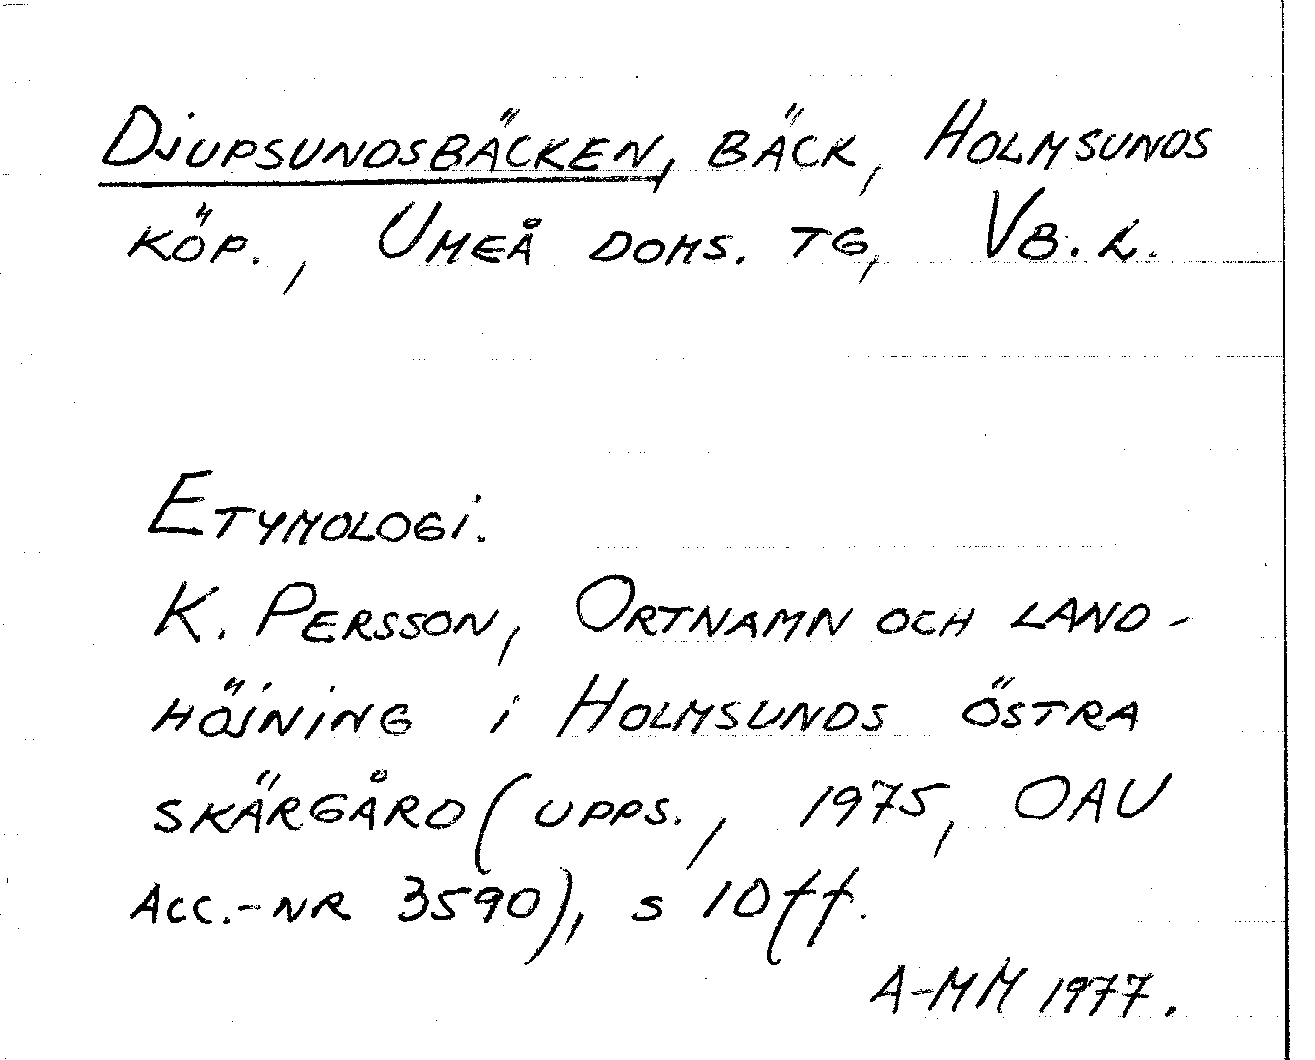 Djupsundsbäcken, bäck, Holmsunds
köp., Umeå doms. tg, Vb. l.
Etymologi.
K. Persson, Ortnamn och land-
höjning i Holmsunds östra
skärgård (upps., 1975, OAU
Acc.-nr 3590), s 10 ff.
A-MM 1977.